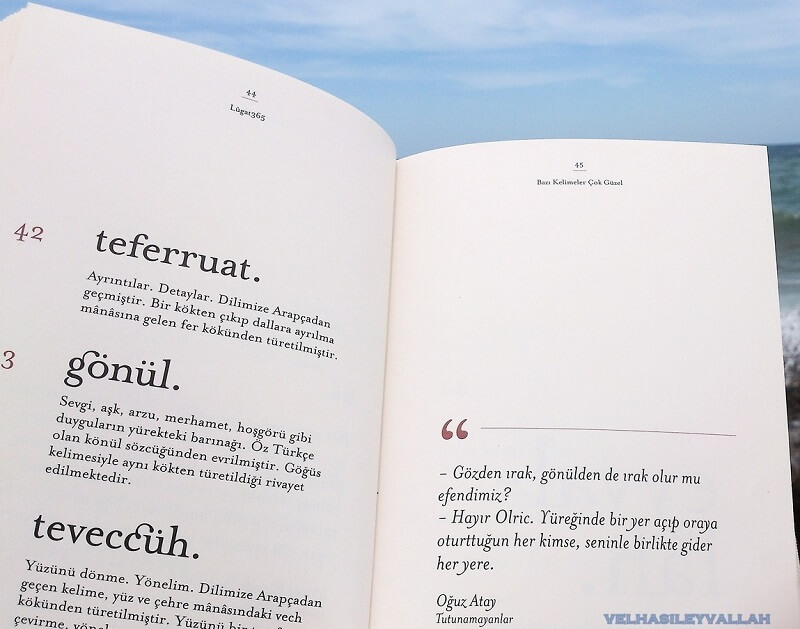 44
Lûgat365
42
teferruat.
Ayrıntılar. Detaylar. Dilimize Arapçadan
geçmiştir. Bir kökten çıkıp dallara ayrılma
mânâsına gelen fer kökünden türetilmiştir.
3
gönül.
Sevgi, aşk, arzu, merhamet, hoşgörü gibi
duyguların yürekteki barınağı. Öz Türkçe
olan könül sözcüğünden evrilmiştir. Göğüs
kelimesiyle aynı kökten türetildiği rivayet
edilmektedir.
teveccüh.
Yüzünü dönme. Yönelim. Dilimize Arapçadan
geçen kelime, yüz ve çehre mânâsındaki vech
kökünden türetilmiştir. Yüzünü
çevirme,
45
Bazı Kelimeler Çok Güzel
“
– Gözden ırak, gönülden de ırak olur mu
efendimiz?
– Hayır Olric. Yüreğinde bir yer açıp oraya
oturttuğun her kimse, seninle birlikte gider
her yere.
Oğuz Atay
Tutunamayanlar
VELHASILEYVALLAH